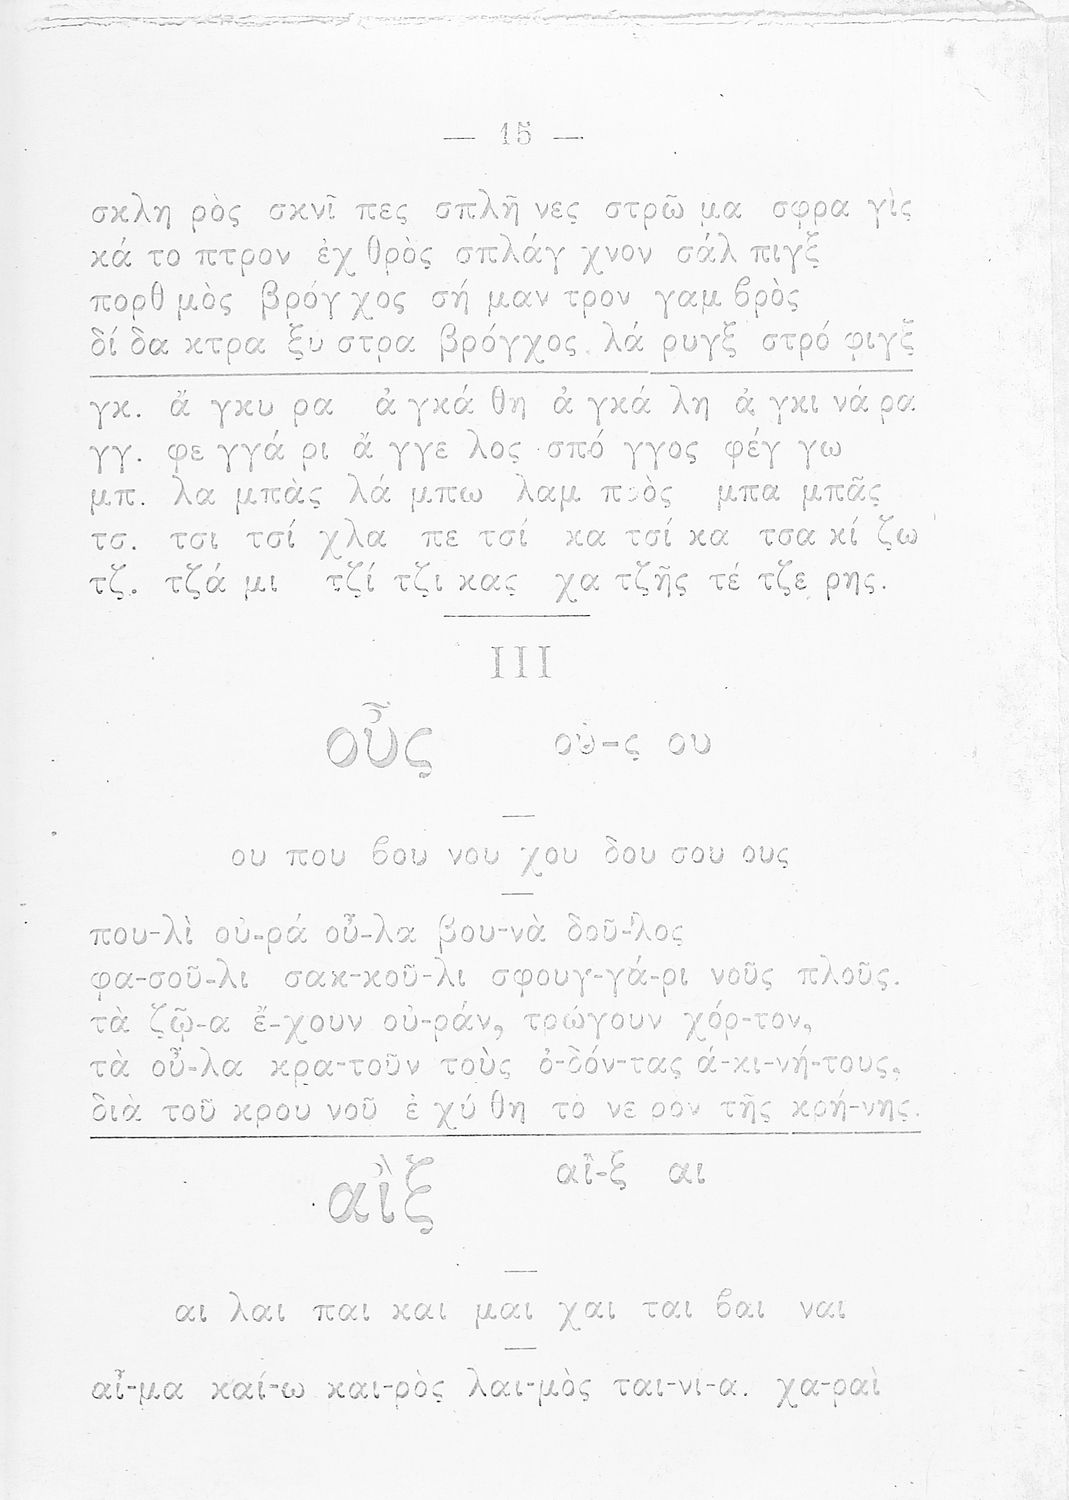 — 15 —
σκλη ρὸς σκνῖ πες σπλῆ νες στρῶ μα σφρα γὶς
κά το πτρον ἐχ θρὸς σπλάγ χνον σάλ πιγξ
πορθ μὸς βρόγ χος σή μαν τρον γαμ ϐρὸς
δί δα κτρα ξυ στρα βρόγχος λά ρυγξ στρό φιγξ
γκ. ἄ γκυ ρα ἀ γκά θη ἀ γκά λη ἀ γκι νά ρα
γγ. φε γγά ρι ἄ γγε λος σπό γγος φέγ γω
μπ. λα μπὰς λά μπω λαμ πρὸς μπα μπᾶς
τσ. τσι τσί χλα πε τσί κα τσί κα τσα κί ζω
τζ. τζά μι τζί τζι κας χα τζῆς τέ τζε ρης.
III
οὖς οὐ-ς ου
ου που ϐου νου χου δου σου ους
που-λὶ οὐ-ρά οὖ-λα βου-νὰ δοῦ-λος
φα-σοῦ-λι σακ-κοῦ-λι σφουγ-γά-ρι νοῦς πλοῦς.
τὰ ζῷ-α ἔ-χουν οὐ-ράν, τρώγουν χόρ-τον,
τὰ οὖ-λα κρα-τοῦν τοὺς ὀ-δόν-τας ά-κι-νή-τους,
διὰ τοῦ κρου νοῦ ἐ χύ θη τὸ νε ρὸν τῆς κρή-νης.
αἲξ αἲ-ξ αι
αι λαι παι και μαι χαι ται ϐαι ναι
αἷ-μα καί-ω και-ρὸς λαι-μὸς ται-νι-α. χα-ραὶ